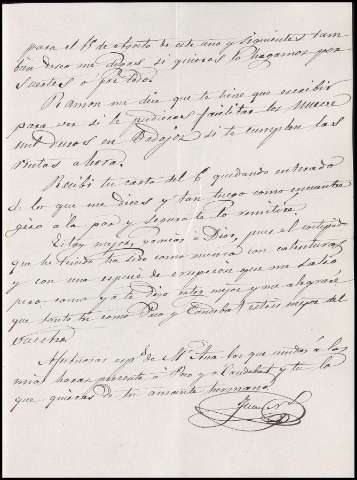 para el 1º de Agosto de este año y siguientes tam-
bien deseo me digas si quieres lo hagamos por
suertes o por todo.
Ramon me dice que te tiene que escribir
para ver si le pudieras facilitar los nueve
mil duros en Badajoz si te cumplen las
ventas ahora.
Recibí tu carta del 6 quedando enterado
de lo que me dices y tan luego como encuentre
giro a la par y seguro te lo remitiré.
Estoy mejor, gracias a Dios, pues el
que he tenido ha sido como nunca con calentura
y con una especie de erupcion que me salio
pero como ya te digo estoy mejor y me alegraré
que tanto tu como Pno y Cándida esteis mejor del
vuestro.
Afectuosas esp.s de Mª Ana las que unidas a las
mias haras presente a Pno y a Candida y tu lo
que quieras de tu amante hermano
Juan